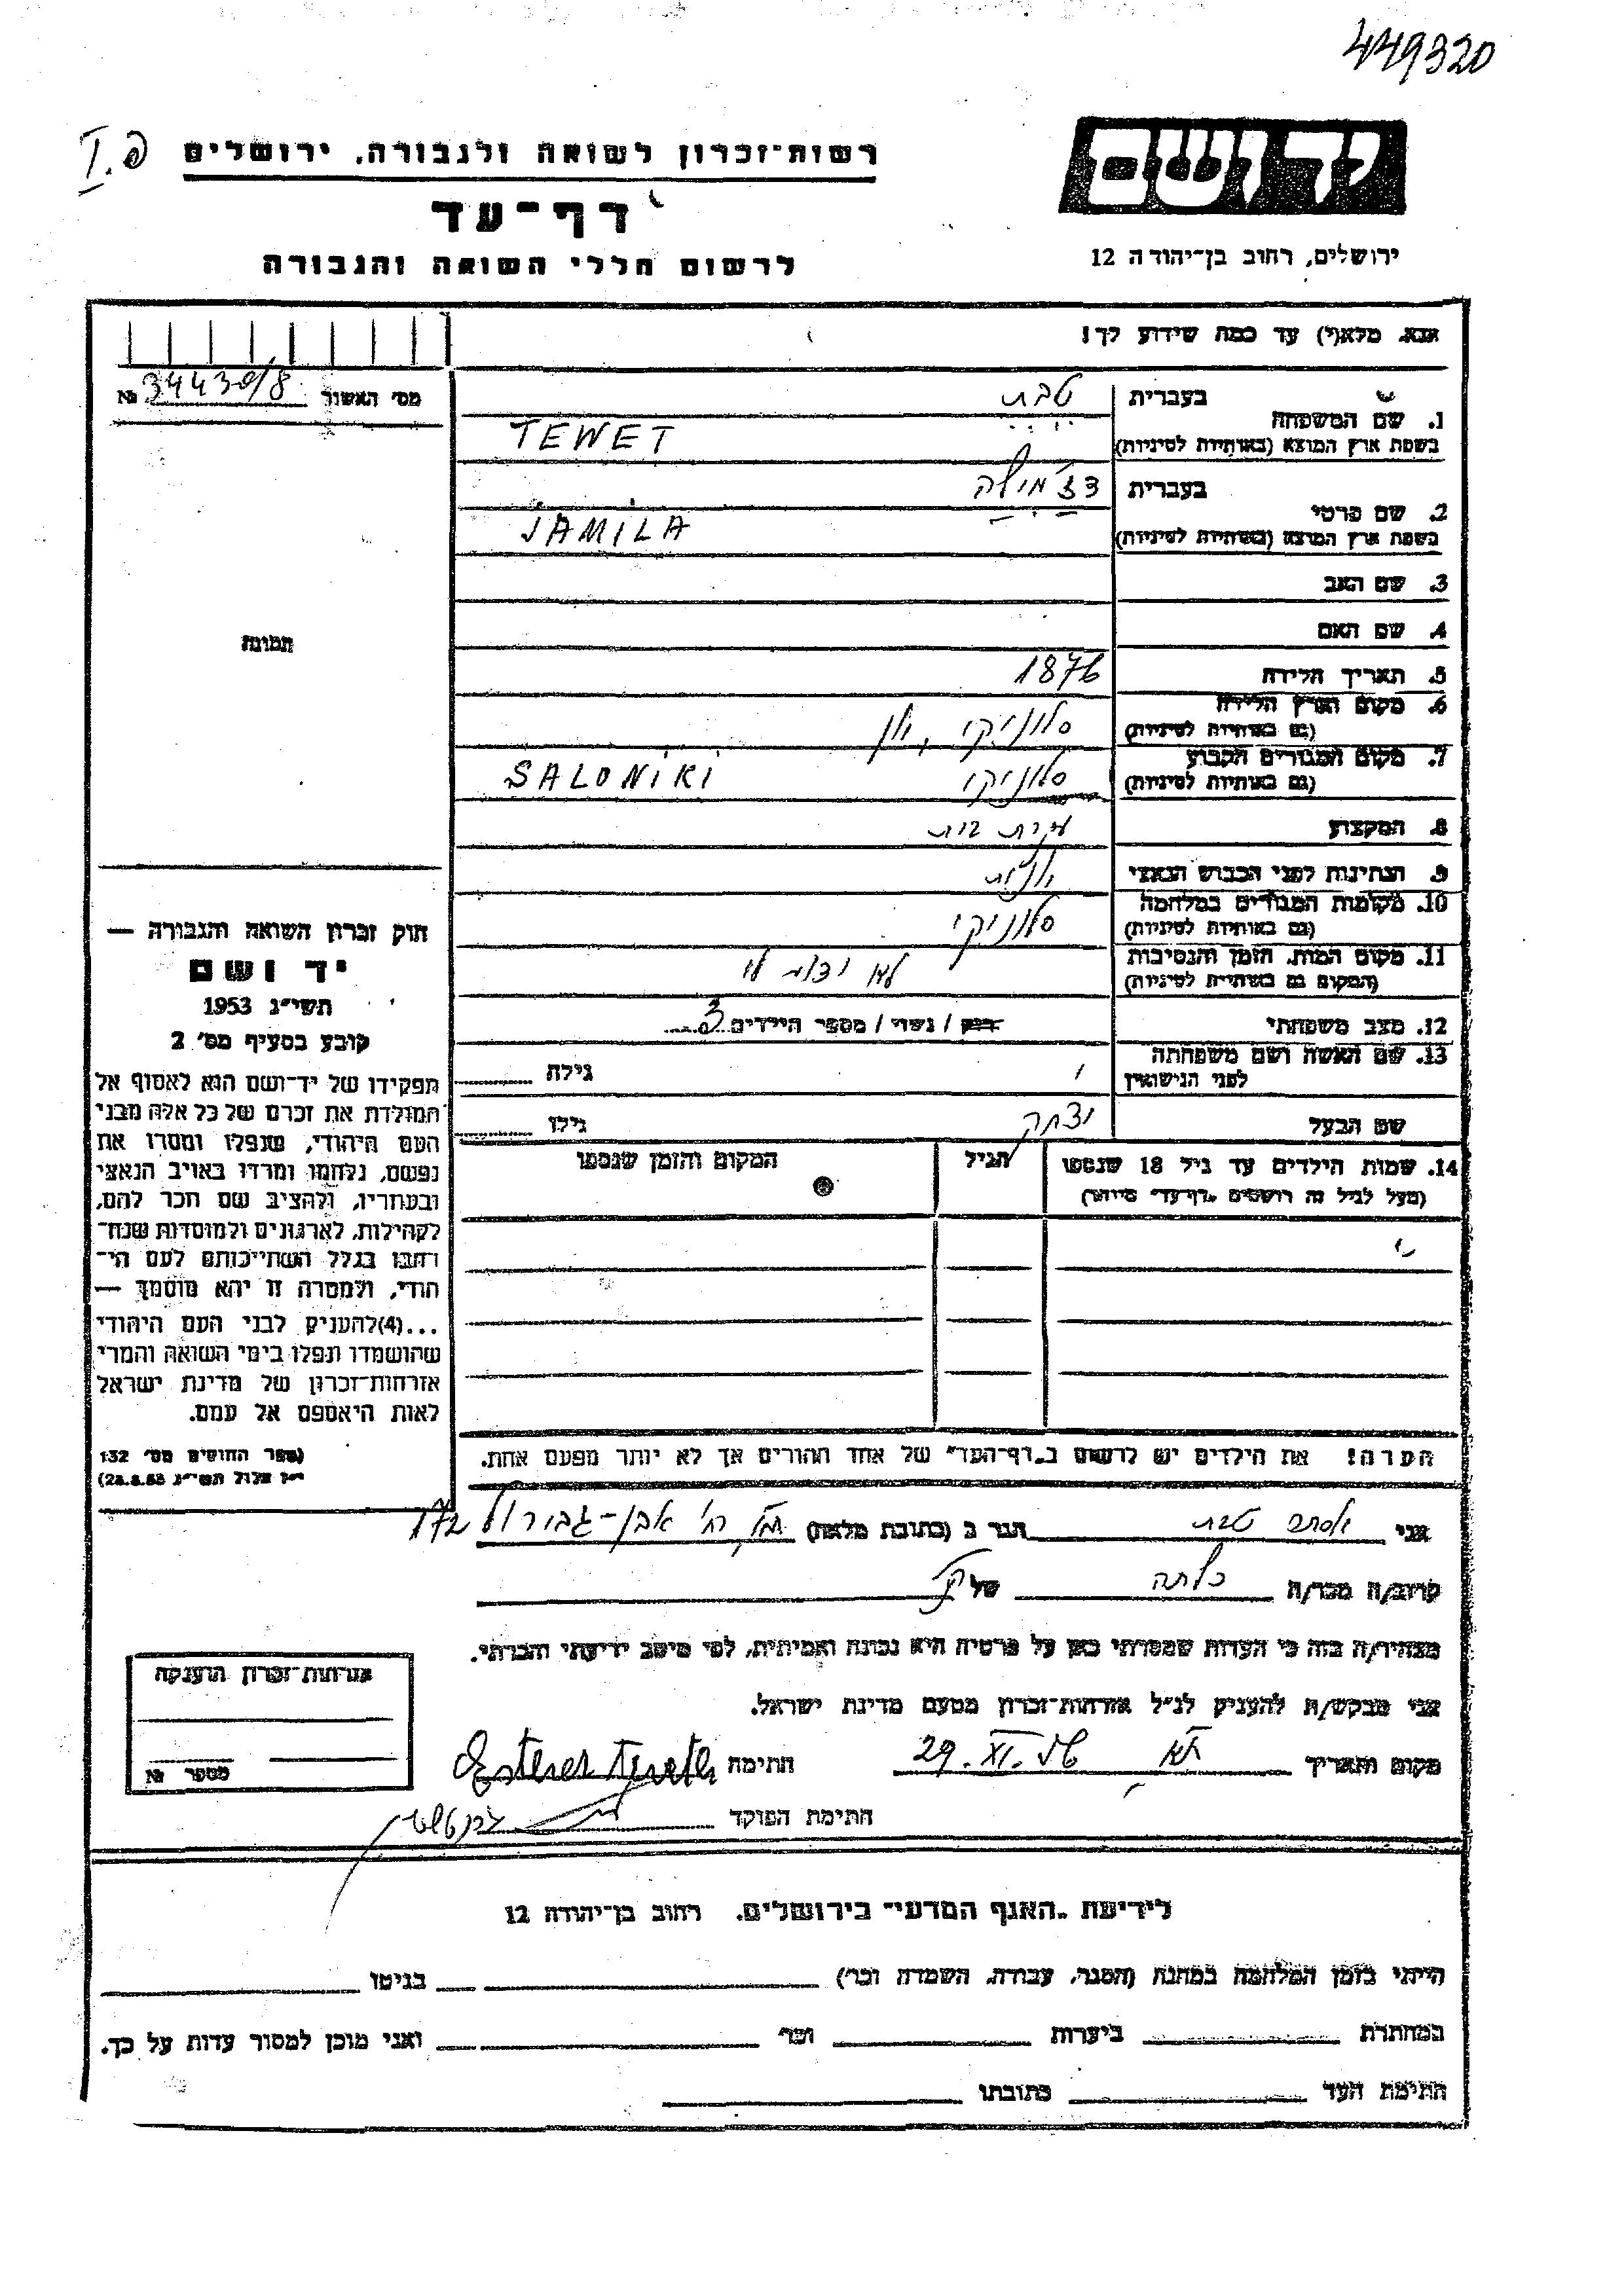 449320
רשות-זכרון לשואה ולגבורה, ירושלים
דף-עד
לרשום חללי השואה והגבורה
יד ושם
ירושלים, רחוב בן-יהודה 12
אנא, מלא(י) עד כמה שידוע לך!
מס' האשור 34430/8 №
תמונה
בעברית טבת
1. שם המשפחה
בשפת ארץ המוצא (באותיות לטיניות) TEWET
בעברית דז'מילה
2. שם פרטי
בשפת ארץ המוצא (באותיות לטיניות) JAMILA
3. שם האב
4. שם האם
5. תאריך הלידה 1876
6. מקום וארץ הלידה סלוניקי, יון
(גם באותיות לטיניות)
7. מקום המגורים הקבוע סלוניקי SALONIKI
(גם באותיות לטיניות)
8. המקצוע עקרת בית
9. הנתינות לפני הכבוש הנאצי יונית
10. מקומות המגורים במלחמה סלוניקי
(גם באותיות לטיניות)
11. מקום המות, הזמן והנסיבות לא ידוע לי
(המקום גם באותיות לטיניות)
12. מצב משפחתי רווק / נשוי / מספר הילדים 3
13. שם האשה ושם משפחתה
לפני הנישואין גילה
שם הבעל יצחק גילו
14. שמות הילדים עד גיל 18 שנספו הגיל המקום והזמן שנספו
(מעל לגיל זה רושמים "דף-עד" מיוחד)
הערה! את הילדים יש לרשום ב"דף-העד" של אחד ההורים אך לא יותר מפעם אחת.
חוק זכרון השואה והגבורה —
יד ושם
תשי"ג 1953
קובע בסעיף מס' 2
תפקידו של יד-ושם הוא לאסוף אל
המולדת את זכרם של כל אלה מבני
העם היהודי, שנפלו ומסרו את
נפשם, נלחמו ומרדו באויב הנאצי
ובעוזריו, ולהציב שם וזכר להם,
לקהילות, לארגונים ולמוסדות שנח-
רבו בגלל השתייכותם לעם הי-
הודי, ולמטרה זו יהא מוסמך —
...(4)להעניק לבני העם היהודי
שהושמדו ונפלו בימי השואה והמרי
אזרחות-זכרון של מדינת ישראל
לאות היאספם אל עמם.
(ספר החוקים מס' 132
י"ז אלול תשי"ג 28.8.53)
אני אסתר טבת הגר ב (כתובת מלאה) רח' אבן-גבירול 172
קרוב/ה מכר/ה כלתה של
מצהיר/ה בזה כי העדות שמסרתי כאן על פרטיה היא נכונה ואמיתית, לפי מיטב ידיעתי והכרתי.
אני מבקש/ת להעניק לנ"ל אזרחות-זכרון מטעם מדינת ישראל.
מקום ותאריך ת"א 29.XI. חתימה Esther Teveth
חתימת הפוקד
אזרחות-זכרון הוענקה
מספר №
לידיעת "האגף המדעי" בירושלים, רחוב בן-יהודה 12
הייתי בזמן המלחמה במחנה (הסגר, עבודה, השמדה וכו') בגיטו
במחתרת ביערות וכו' ואני מוכן למסור עדות על כך.
חתימת העד כתובתו